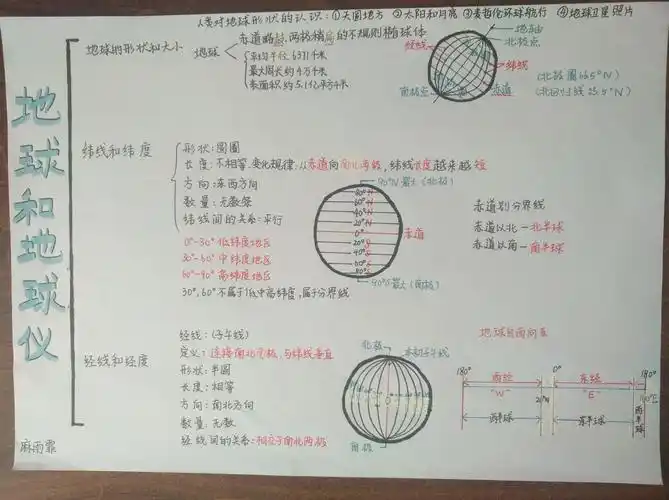 人类对地球形状的认识：①天圆地方 ②太阳和月亮 ③麦哲伦环球航行 ④地球卫星照片
地球和地球仪
地球的形状和大小
地球
赤道略鼓，两极稍扁的不规则椭球体
平均半径：6371千米
最大周长约4万千米
表面积约5.1亿平方千米
经线
地轴
北极点
纬线
南极点
赤道
(北极圈66.5°N)
(北回归线23.5°N)
纬线和纬度
形状：圆圈
长度：不相等，变化规律：从赤道向南北两极，纬线长度越来越短
方向：东西方向
数量：无数条
纬线间的关系：平行
0°-30° 低纬度地区
30°-60° 中纬度地区
60°-90° 高纬度地区
30°,60°不属于低中高纬度，属于分界线
90°N最大(北极)
80°N
60°N
40°N
20°N
0°
赤道
20°S
40°S
60°S
80°S
90°S最大(南极)
赤道划分界线
赤道以北-北半球
赤道以南-南半球
经线和经度
经线：(子午线)
定义：连接南北两极，与纬线垂直
形状：半圆
长度：相等
方向：南北方向
数量：无数
经线间的关系：相交于南北两极
北极
本初子午线
南极
180°
西经
"W"
0°
东经
"E"
180°
20°W
160°E
西半球
东半球
西半球
麻雨霏